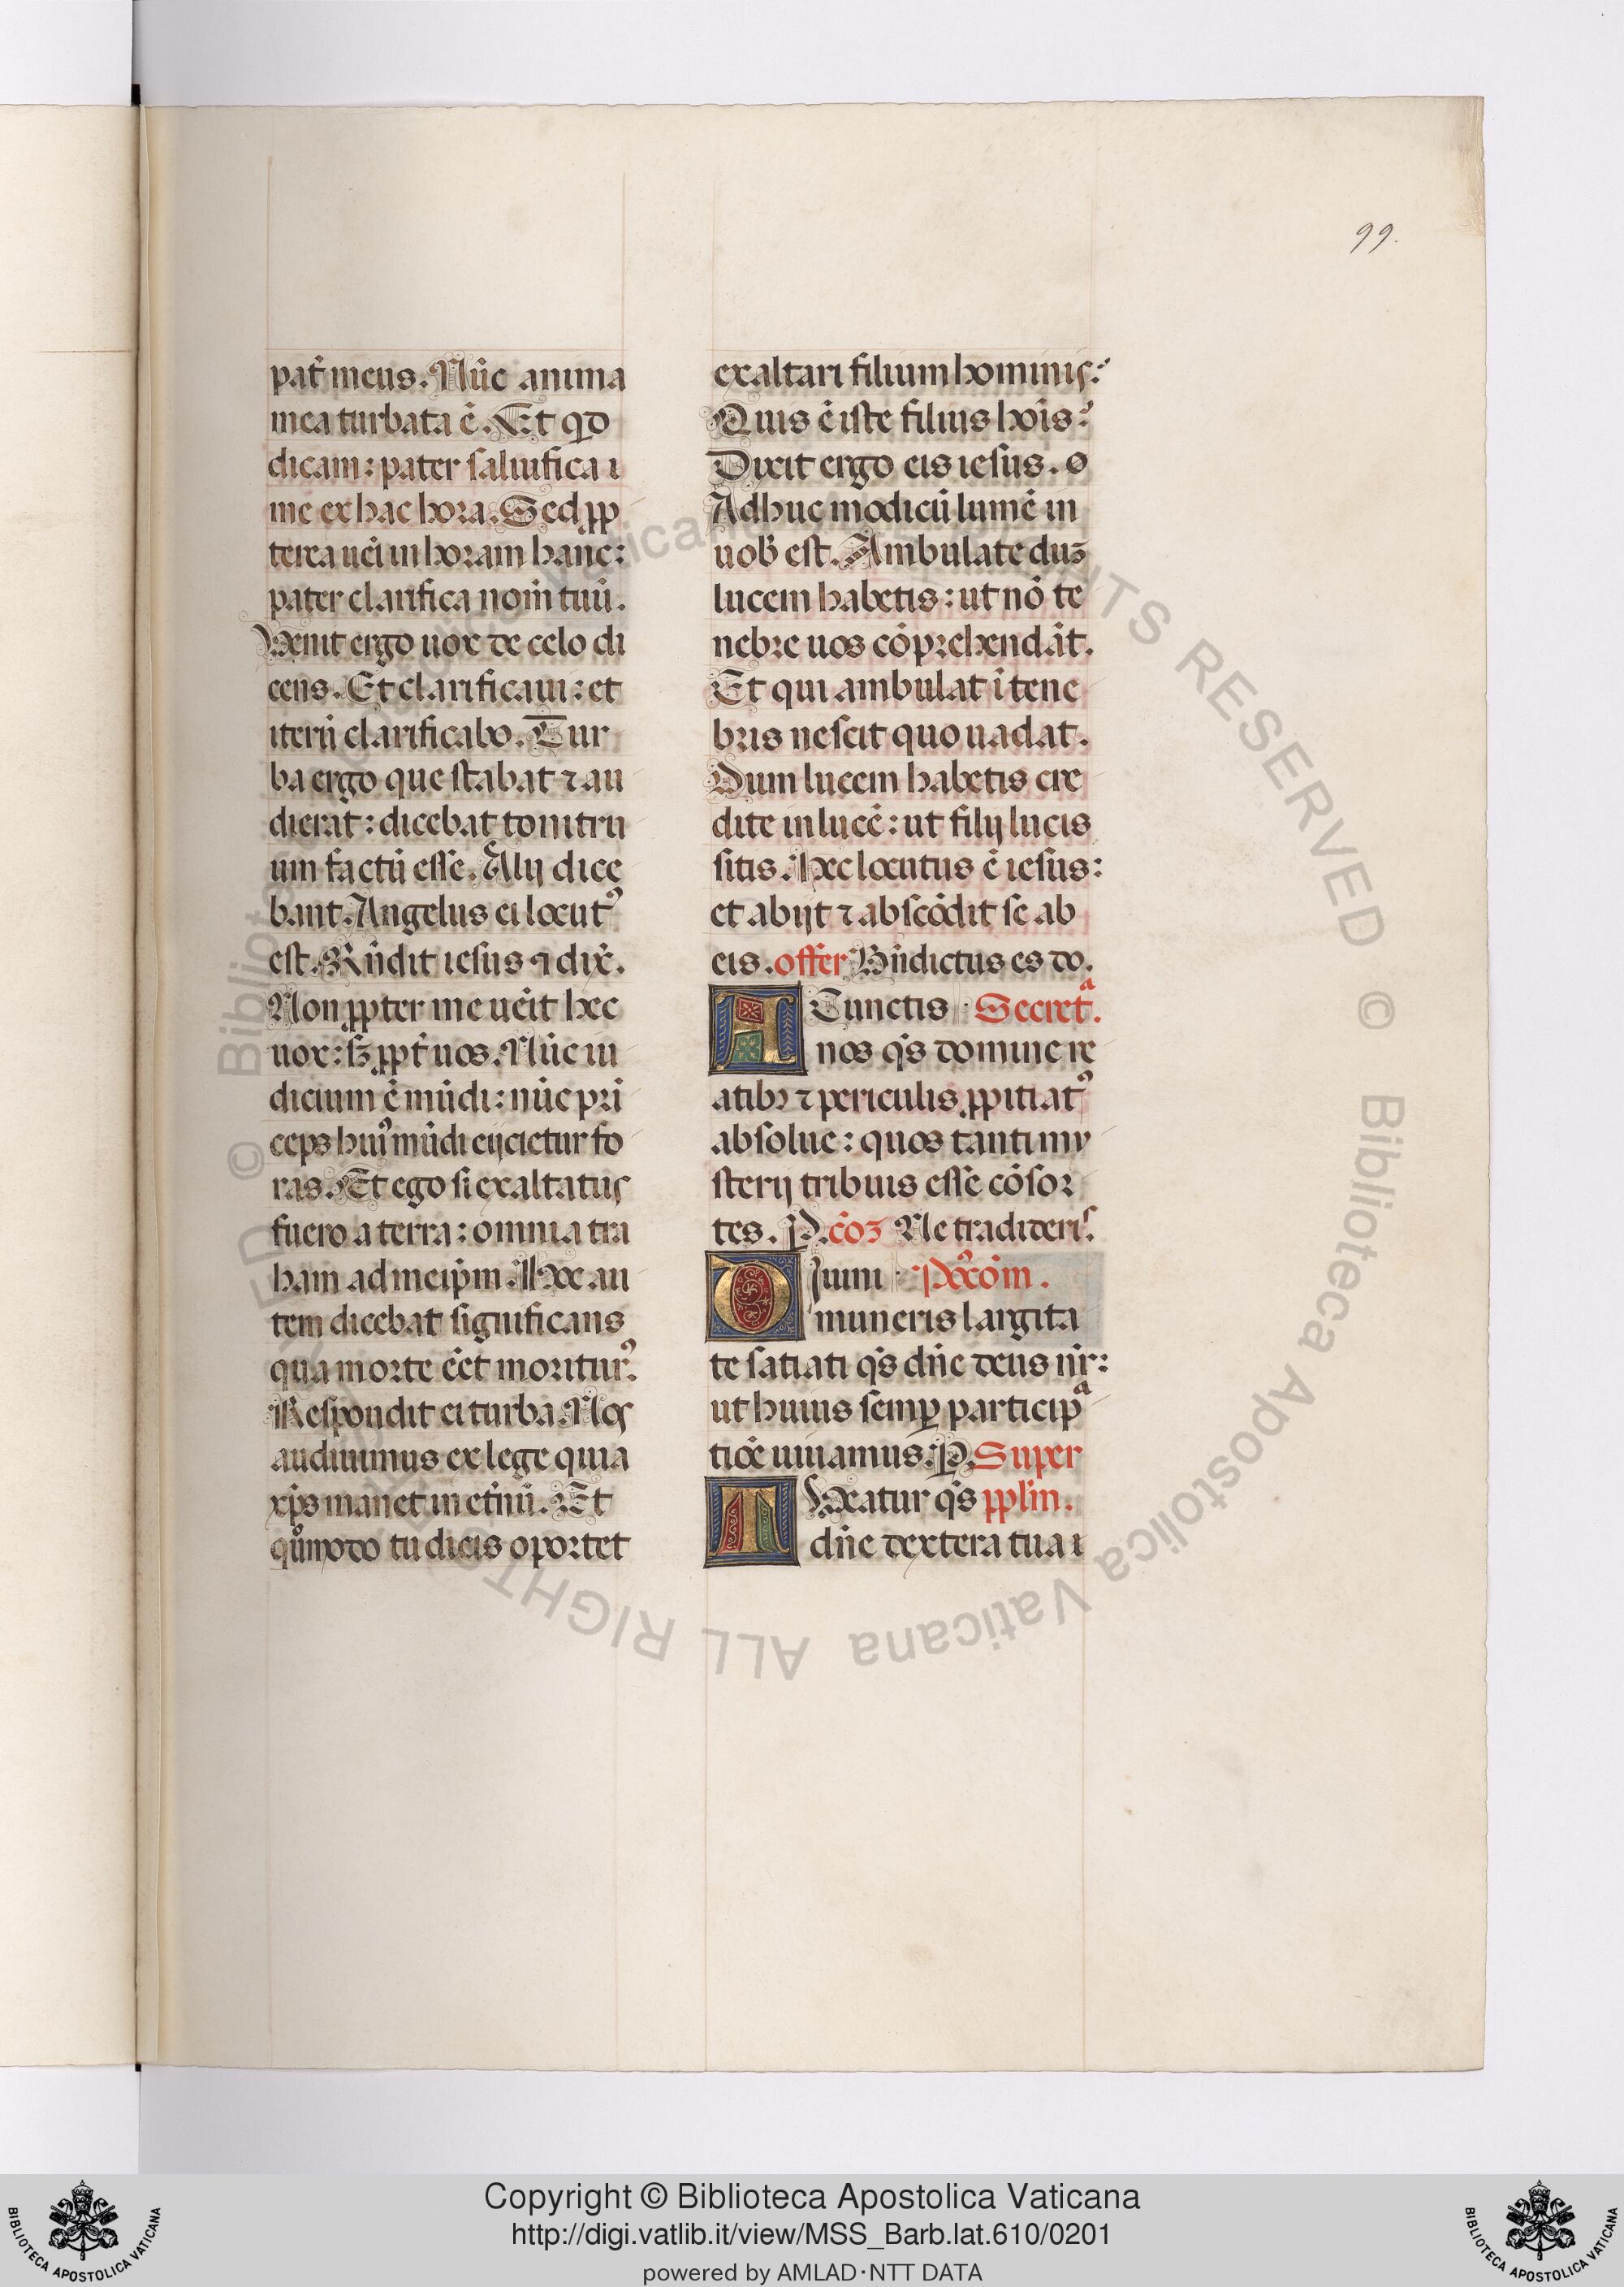 99.
pat̄ meus. Nūc anima
mea turbata ē. Et qđ
dicam: pater saluifica
me ex hac hora. Sed ꝓp
terea uēi in horam hanc:
pater clarifica noīm tuū.
Venit ergo uox de celo di
cens. Et clarificaui: et
iterū clarificabo. Tur
ba ergo que stabat ⁊ au
dierat: dicebat tonitru
um factū esse. Alij dice
bant. Angelus ei locutꝰ
est. Rn̄dit iesus ⁊ dix̄.
Non ꝓpter me uēit hec
uox: sꝫ ꝓpt̄ uos. Nūc iu
dicium ē mūdi: nūc pri
ceps huiꝰ mūdi eijcietur fo
ras. Et ego si exaltatus
fuero a terra: omnia tra
ham ad meip̄m. Hoc au
tem dicebat significans
qua morte ēēt moriturꝰ.
Respondit ei turba. Nos
audiuimus ex lege quia
xp̄s manet in et̄nū. Et
quōmodo tu dicis oportet
exaltari filium hominis:
Quis ē iste filius hoīs:
Dixit ergo eis iesus.
Adhuc modicū lumē in
uob̄ est. Ambulate duꝫ
lucem habetis: ut nō te
nebre uos cōprehendāt.
Et qui ambulat ī tene
bris nescit quo uadat.
Dum lucem habetis cre
dite in lucē: ut filij lucis
sitis. Hec locutus ē iesus:
et abijt ⁊ abscōdit se ab
eis. offer Bn̄dictus es do.
A Cunctis Secretᵃ.
nos qs̄ domine re
atibꝫ ⁊ periculis ꝓpitiatꝰ
absolue: quos tanti my
sterij tribuis esse cōsor
tes. P. cōꝫ Ne tradideris
D Iuini Pꝰcōm.
muneris largita
te satiati qs̄ dn̄e deus nr̄:
ut huius semꝑ particip̄ᵃ
tiōe uiuamus. P. Super
M Hatur qs̄ pp̄lm.
dn̄e dextera tua
Copyright © Biblioteca Apostolica Vaticana
http://digi.vatlib.it/view/MSS_Barb.lat.610/0201
powered by AMLAD·NTT DATA
BIBLIOTECA APOSTOLICA VATICANA
BIBLIOTECA APOSTOLICA VATICANA
© Biblioteca Apostolica Vaticana ALL RIGHTS RESERVED © Biblioteca Apostolica Vaticana ALL RIGHTS RESERVED